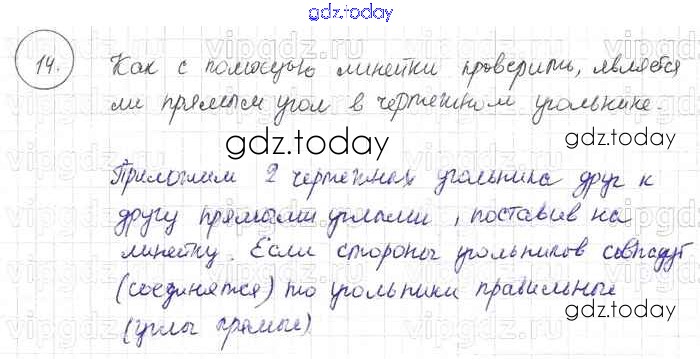 gdz.today
14.
Как с помощью линейки проверить, является
ли прямым угол в чертежном угольнике.
gdz.today
gdz.today
Приложим 2 чертежных угольника друг к
другу прямыми углами, поставив на
линейку. Если стороны угольников совпадут
(соединятся) то угольники правильные
(углы прямые)
gdz.today